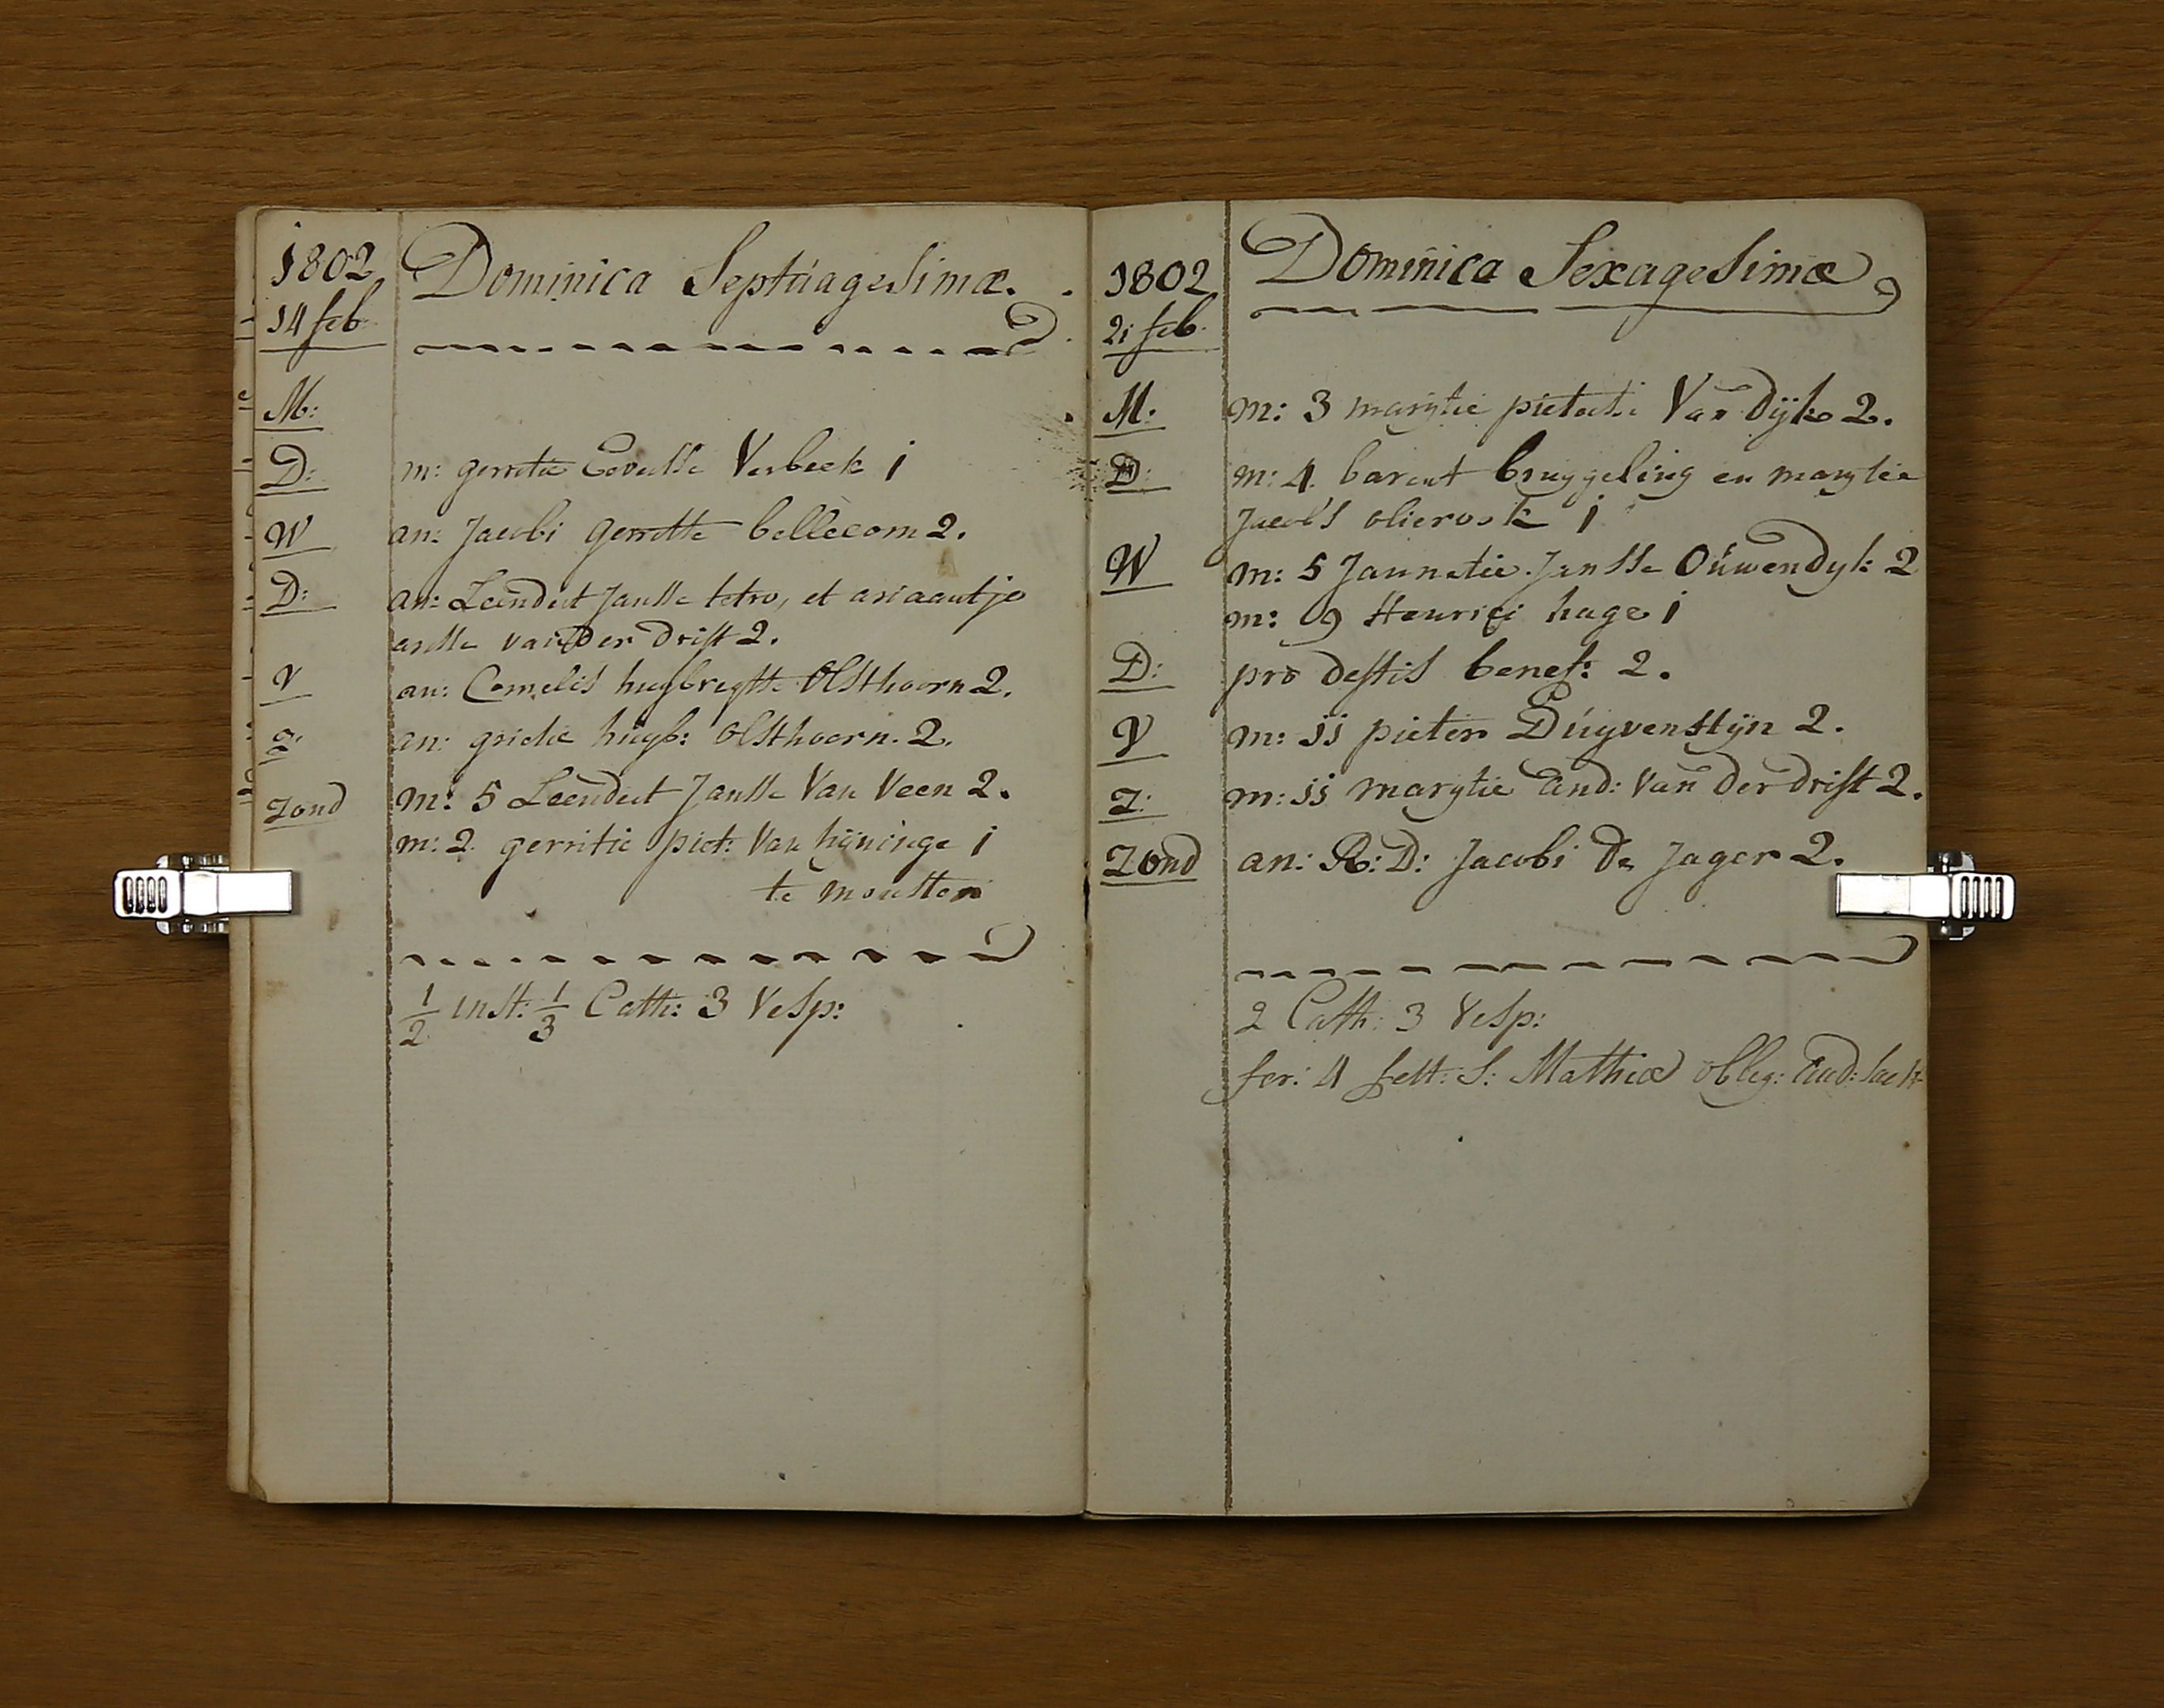 1802
14 feb
Dominica Septuagesimæ.
M:
D: m: gerretie Verbeek j
W an: Jacobi gerretse bellecom 2.
D: an: Leendert Jansse tetro, et ariaantje
van der drift 2.
V an: Cornelis huijbregtse Olsthoorn 2.
Z: an: grietie huijb: Olsthoorn. 2.
Zond m: 5 Leendert Jansse Van Veen 2.
m: 2. gerritie piet: Van hijninge j
te monster
1/2 inst: 1/3 Cath: 3 Vesp:
1802
21 feb.
Dominica Sexagesimæ
M: m: 3 marijtie Van Dijk 2.
D: m: 4. barent bruggeling en marijtie
Jacobs olierook j
W m: 5 Jannetie Jansse Ouwendijk 2
m: 9 Henrici hage j
D: pro deftis benef: 2.
V m: jj pieter Duijvenstijn 2.
Z: m: jj marijtie Van der drift 2.
Zond an: R: D: Jacobi De Jager 2.
2 Cath: 3 Vesp:
fer: 4 fest: S: Mathiæ oblig: